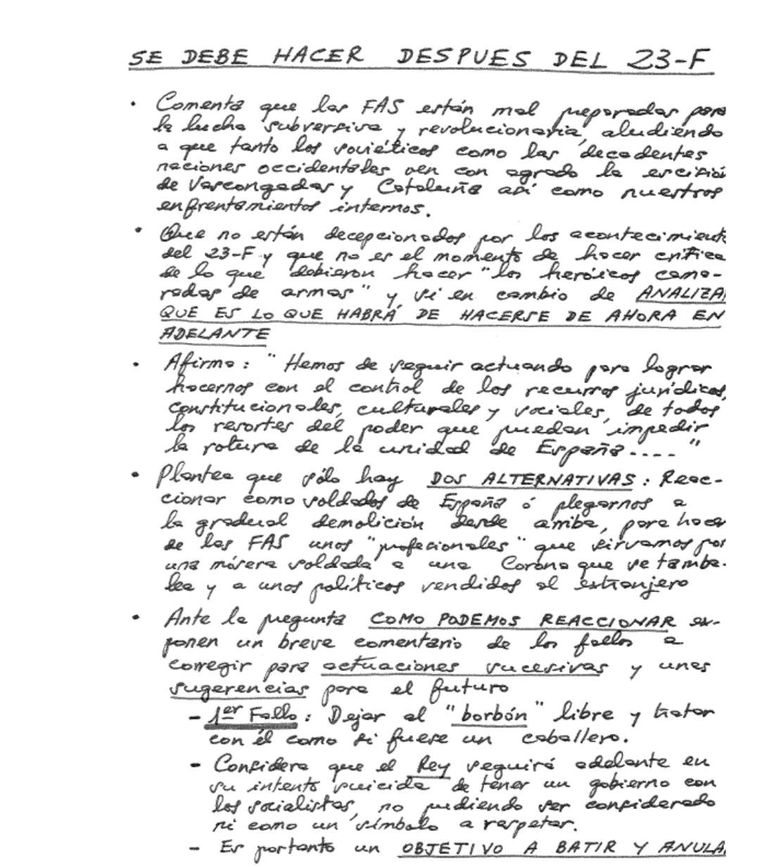 SE DEBE HACER DESPUES DEL 23-F
• Comenta que las FAS están mal preparadas para
la lucha subversiva y revolucionaria, aludiendo
a que tanto los soviéticos como las decadentes
naciones occidentales ven con agrado la escisión
de Vascongadas y Cataluña así como nuestros
enfrentamientos internos.
• Que no están decepcionados por los acontecimient
del 23-F y que no es el momento de hacer crítica
de lo que debieron hacer "los heróicos cama-
radas de armas" y si en cambio de ANALIZA
QUE ES LO QUE HABRÁ DE HACERSE DE AHORA EN
ADELANTE
• Afirma: "Hemos de seguir actuando para lograr
hacernos con el control de los recursos jurídicos,
constitucionales, culturales y sociales, de todos
los resortes del poder que puedan impedir
la rotura de la unidad de España...."
• Plantea que sólo hay DOS ALTERNATIVAS: Reac-
cionar como soldados de España ó plegarnos a
la gradual demolición desde arriba, para hacer
de las FAS unos "profesionales" que sirvamos por
una mísera soldada a una Corona que se tamba-
lea y a unos políticos vendidos al extranjero
• Ante la pregunta COMO PODEMOS REACCIONAR ex-
ponen un breve comentario de los fallos a
corregir para actuaciones sucesivas y unas
sugerencias para el futuro
- 1er Fallo: Dejar al "borbón" libre y tratar
con él como si fuese un caballero.
- Considera que el Rey seguirá adelante en
su intento suicida de tener un gobierno con
los socialistas, no pudiendo ser considerado
ni como un símbolo a respetar.
- Es portanto un OBJETIVO A BATIR Y ANULA